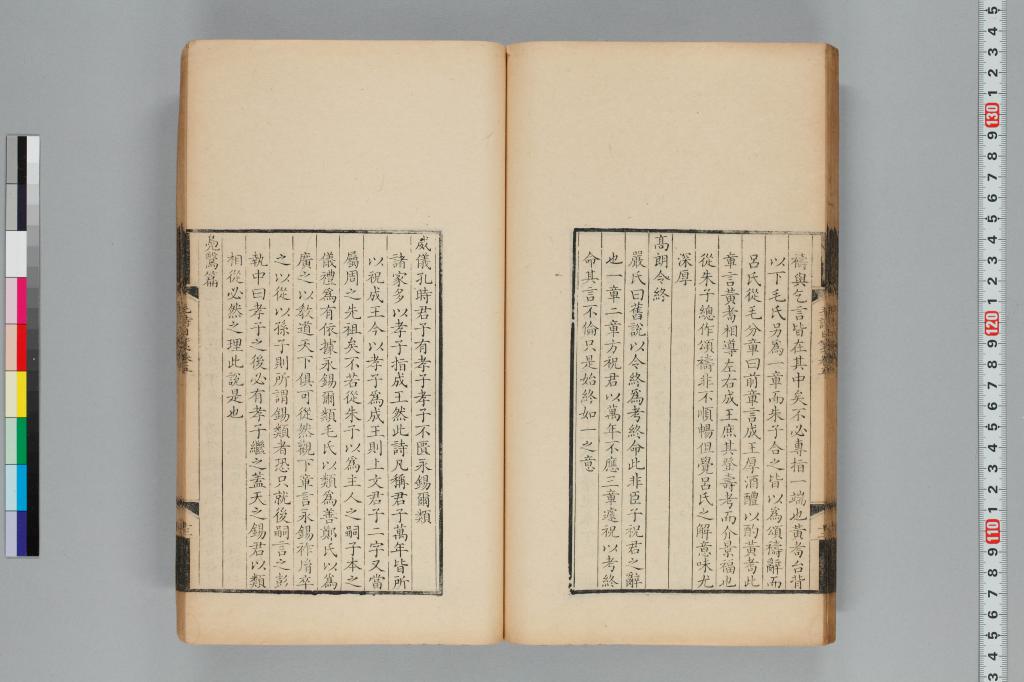 禱與乞言皆在其中矣不必專指一端也黃耇台背
以下毛氏另爲一章而朱子合之皆以爲頌禱辭而
呂氏從毛分章曰前章言成王厚酒醴以酌黃耇此
章言黃耇相導左右成王庶其登壽考而介景福也
從朱子總作頌禱非不順暢但覺呂氏之解意味尤
深厚
高朗令終
嚴氏曰舊說以令終爲考終命此非臣子祝君之辭
也一章二章方祝君以萬年不應三章遽祝以考終
命其言不倫只是始終如一之意
威儀孔時君子有孝子孝子不匱永錫爾類
諸家多以孝子指成王然此詩凡稱君子萬年皆所
以祝成王今以孝子爲成王則上文君子二字又當
屬周之先祖矣不若從朱子以爲主人之嗣子本之
儀禮爲有依據永錫爾類毛氏以類爲善鄭氏以爲
廣之以教道天下俱可從然觀下章言永錫祚胤卒
之以從以孫子則所謂錫類者恐只就後嗣言之彭
執中曰孝子之後必有孝子繼之蓋天之錫君以類
相從必然之理此說是也
鳧鷖篇
130
120
110